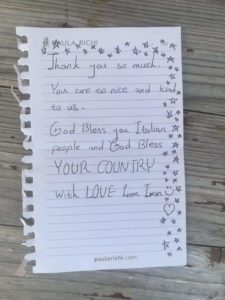 PAULA RICHI
Thank you so much.
You are so nice and kind
to us.
God Bless you Italian
people and God Bless
YOUR COUNTRY
with LOVE Iran Iran
paularichi.com